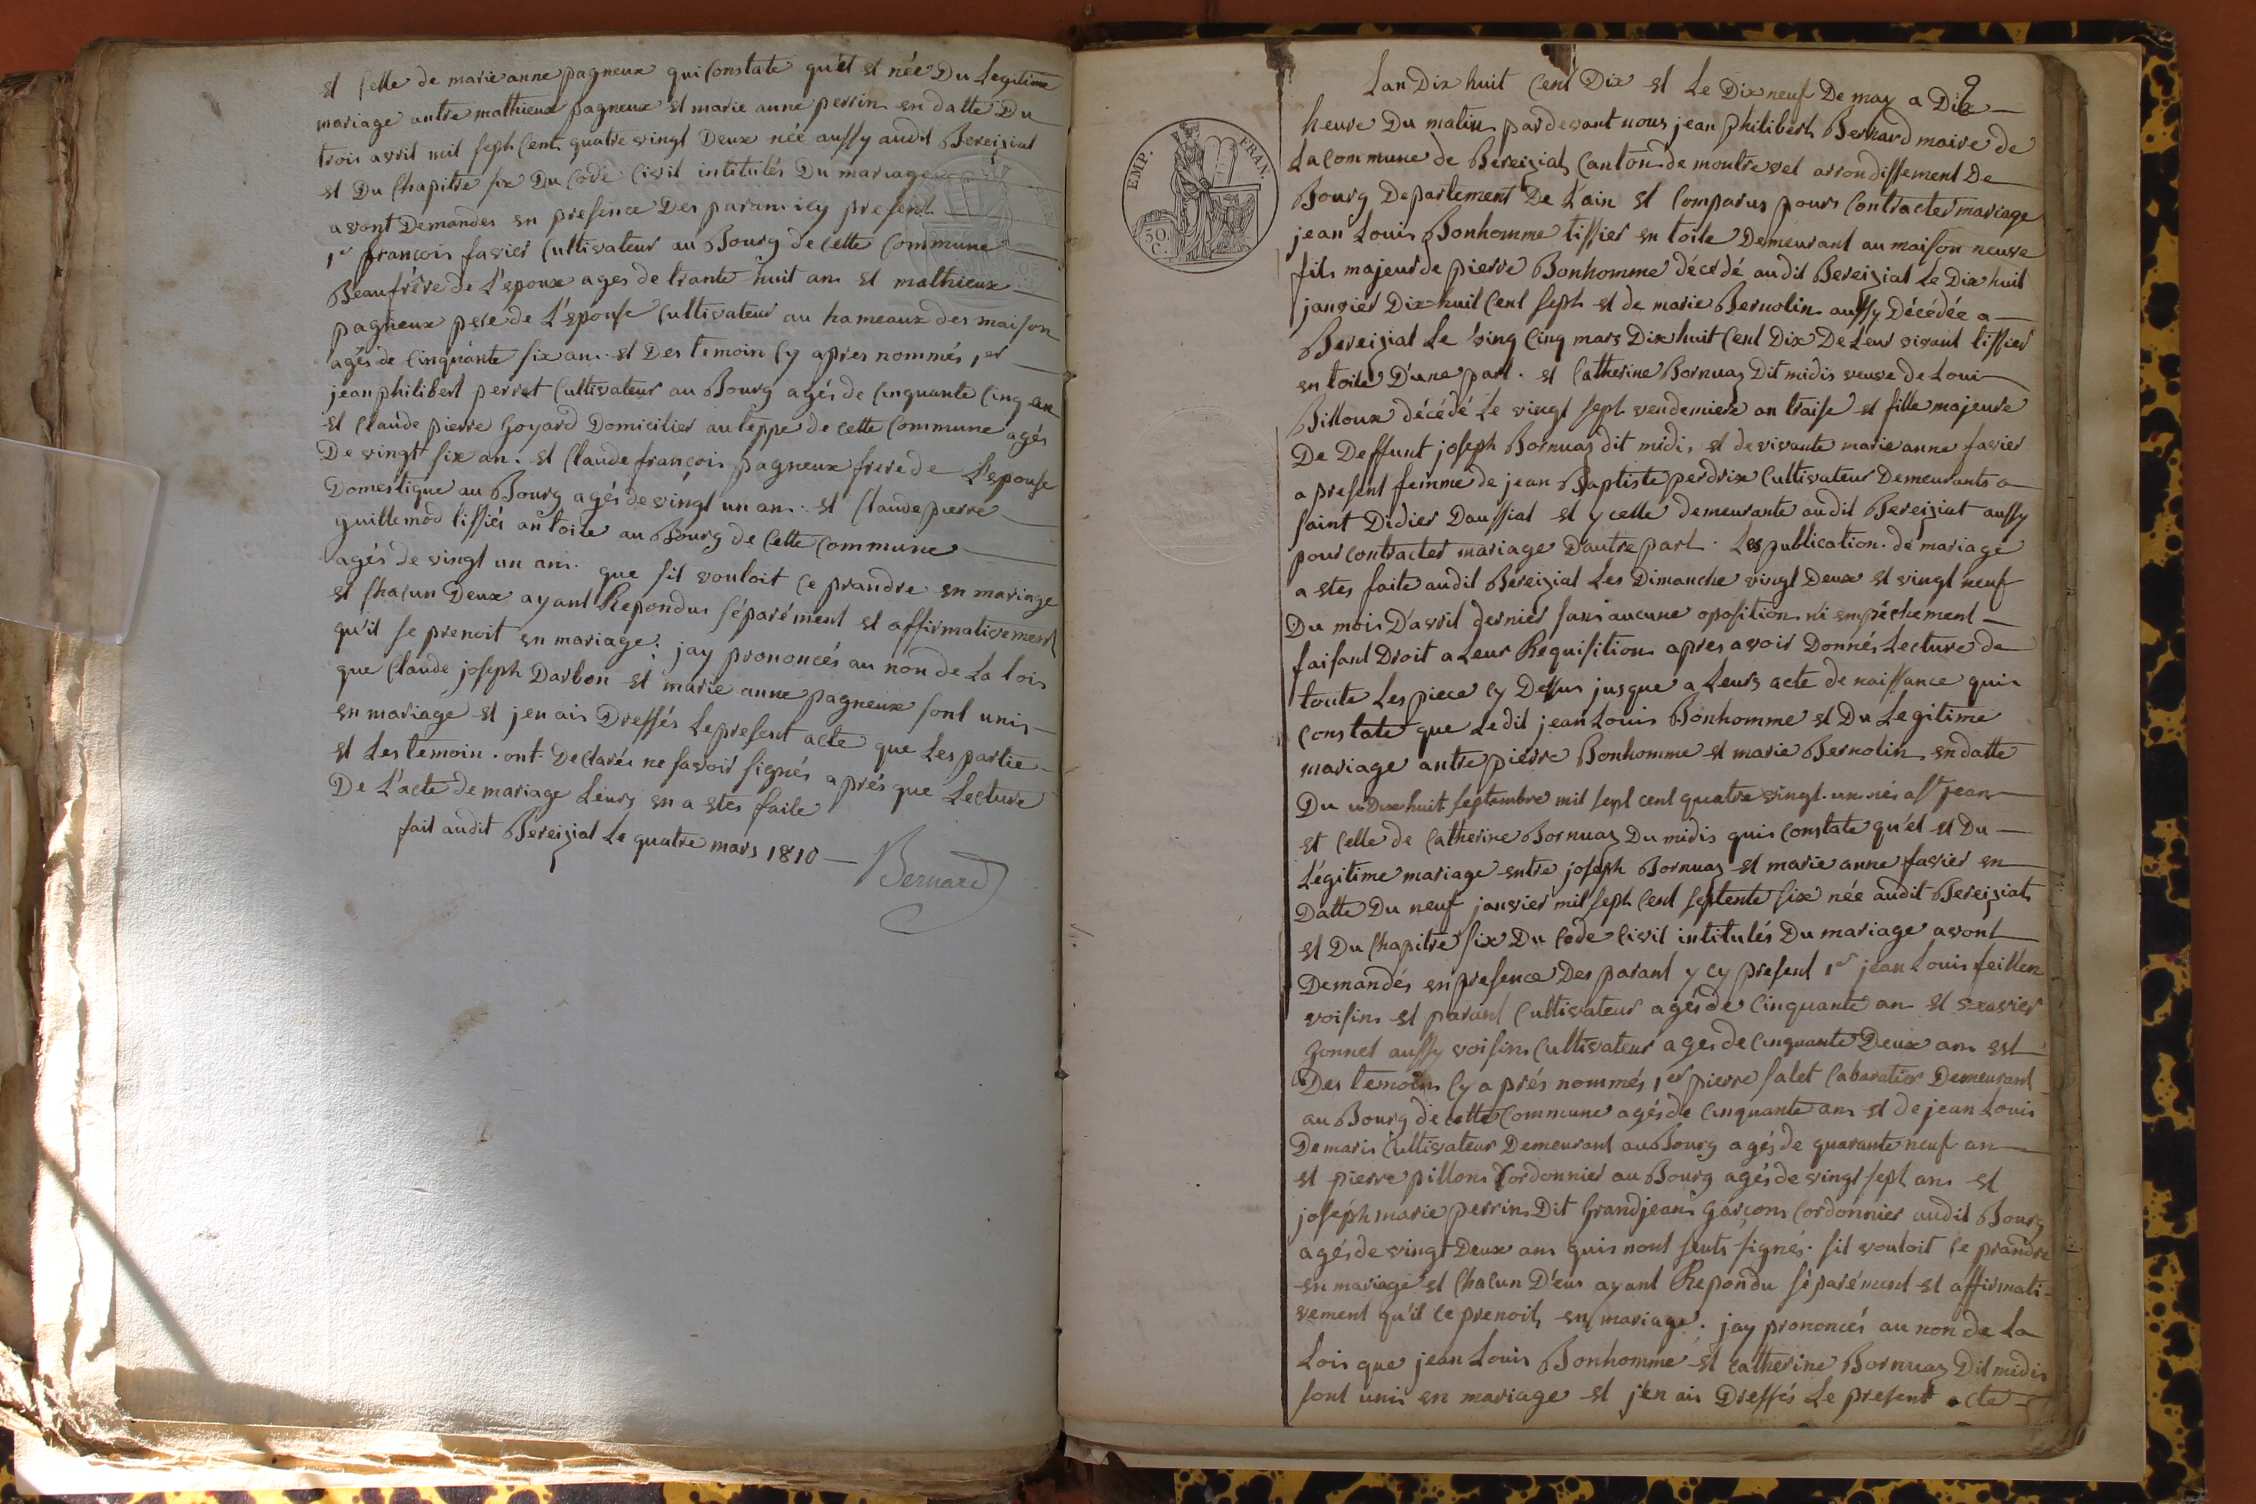 et selle de marie anne pagneux qui Constate qu'el et née Du Legitime
mariage antre mathieux pagneux et marie anne perrin en datte Du
trois avril mil sept Cent quatre vingt Deux née aussy audit Bereiziat
et Du Chapitre six Du Code Civil intitulés Du mariage
avont Demandes en presence Des parans icy present
1er françois favier Cultivateur au Bourg de Cette Commune
Beaufrére de L'epoux ages de trante huit ans et mathieux
pagneux pere de L'epouse Cultivateur au hameaux des maison
agés de Cinquante six ans et Des temoin Cy apres nommés 1er
jean philibert perret Cultivateur au Bourg agés de Cinquante Cinq an
et Claude pierre Goyard Domicilier au teppe de Cette Commune agés
De vingt six an. et Claude françois pagneux frere de L'epouse
Domestique au Bourg agés de vingt un an. et Claude pierre
guillemod tissiés an toile au Bourg de Cette Commune
agés de vingt un ans. que sil vouloit Ce prandre en mariage
et Chacun Deux ayant Repondus séparément et affirmativement
qu'il se prenoit en mariage: jay prononcés au non de La lois
que Claude joseph Darbon et marie anne pagneux sont unis
en mariage et jen ais Dressés Le present acte que Les partie
et Les temoin. ont Declarés ne savoir signés aprés que Lecture
De L'acte de mariage Leurs en a etes faite
fait audit Bereiziat Le quatre mars 1810
Bernard
9
Lan Dix huit Cent Dix et Le Dix neuf De may a Dix
EMP. FRAN.
50. C.
heure Du matin pardevant nous jean philibert Bernard maire de
La Commune de Bereiziat Canton de montrevel arrondissement De
Bourg Departement De L'ain et Comparus pour Contracter mariage
jean Louis Bonhomme tissier en toile Demeurant au maison neuve
fils majeur de pierre Bonhomme décédé audit Bereiziat Le Dix huit
janvier Dix huit Cent sept et de marie Bernolin aussy Décédée a
Bereiziat Le ving Cinq mars Dix huit Cent Dix De Leur vivant tissier
en toile D'une part. et Catherine Bornuaz Dit midis veuve de Loui
Billoux décédé Le vingt sept vendemiere an traise et fille majeure
De Deffunt joseph Bornuaz dit midis et de vivante marie anne favier
a present femme de jean Baptiste perdrix Cultivateur Demeurants a
saint Didier Daussiat et y celle demeurante audit Bereiziat aussy
pour Contracter mariage D'autre part. Les publication de mariage
a etes faite audit Bereiziat Les Dimanche vingt Deux et vingt neuf
Du mois D'avril dernier sans aucune oposition ni empéchement
faisant Droit a Leur Requisition apres avoir Donnés Lecture de
toute Les piece Cy Dessus jusque a Leurs acte de naissance qui
Constate que Le dit jean Louis Bonhomme et Du Legitime
mariage antre pierre Bonhomme et marie Bernolin en datte
Du Dix huit septembre mil sept cent quatre vingt un nés a st jean
et Celle de Catherine Bornuaz Du midis qui Constate qu'el et Du
Légitime mariage entre joseph Bornuaz et marie anne favier en
Datte Du neuf janvier mil sept Cent septente six née audit Bereiziat
et Du Chapitre six Du Code Civil intitulés Du mariage avont
Demandés en presence Des parant y cy present 1er jean Louis feillen
voisins et parant Cultivateur agés de Cinquante an et
Zonnet aussy voisins Cultivateur ages de Cinquante Deux ans est
Des temoins Cy aprés nommés 1er pierre salet Cabaratier Demeurant
au Bourg de Cette Commune agés de Cinquante ans et de jean Louis
Demaris Cultivateur Demeurant au Bourg agés de quarante neuf an
et pierre pillons Cordonnier au Bourg agés de vingt sept ans et
joséph marie perrin Dit Grandjean Garçons Cordonnier audit Bourg
agés de vingt Deux ans quis nont seuts signés. sil vouloit Ce prandre
en mariage et Chacun D'eux ayant Repondu séparément et affirmati-
vement qu'il Ce prenoit en mariage. jay prononcés au non de La
Lois que jean Louis Bonhomme et Catherine Bornuaz Dit midis
sont unis en mariage et j'en ais Dressés Le present acte